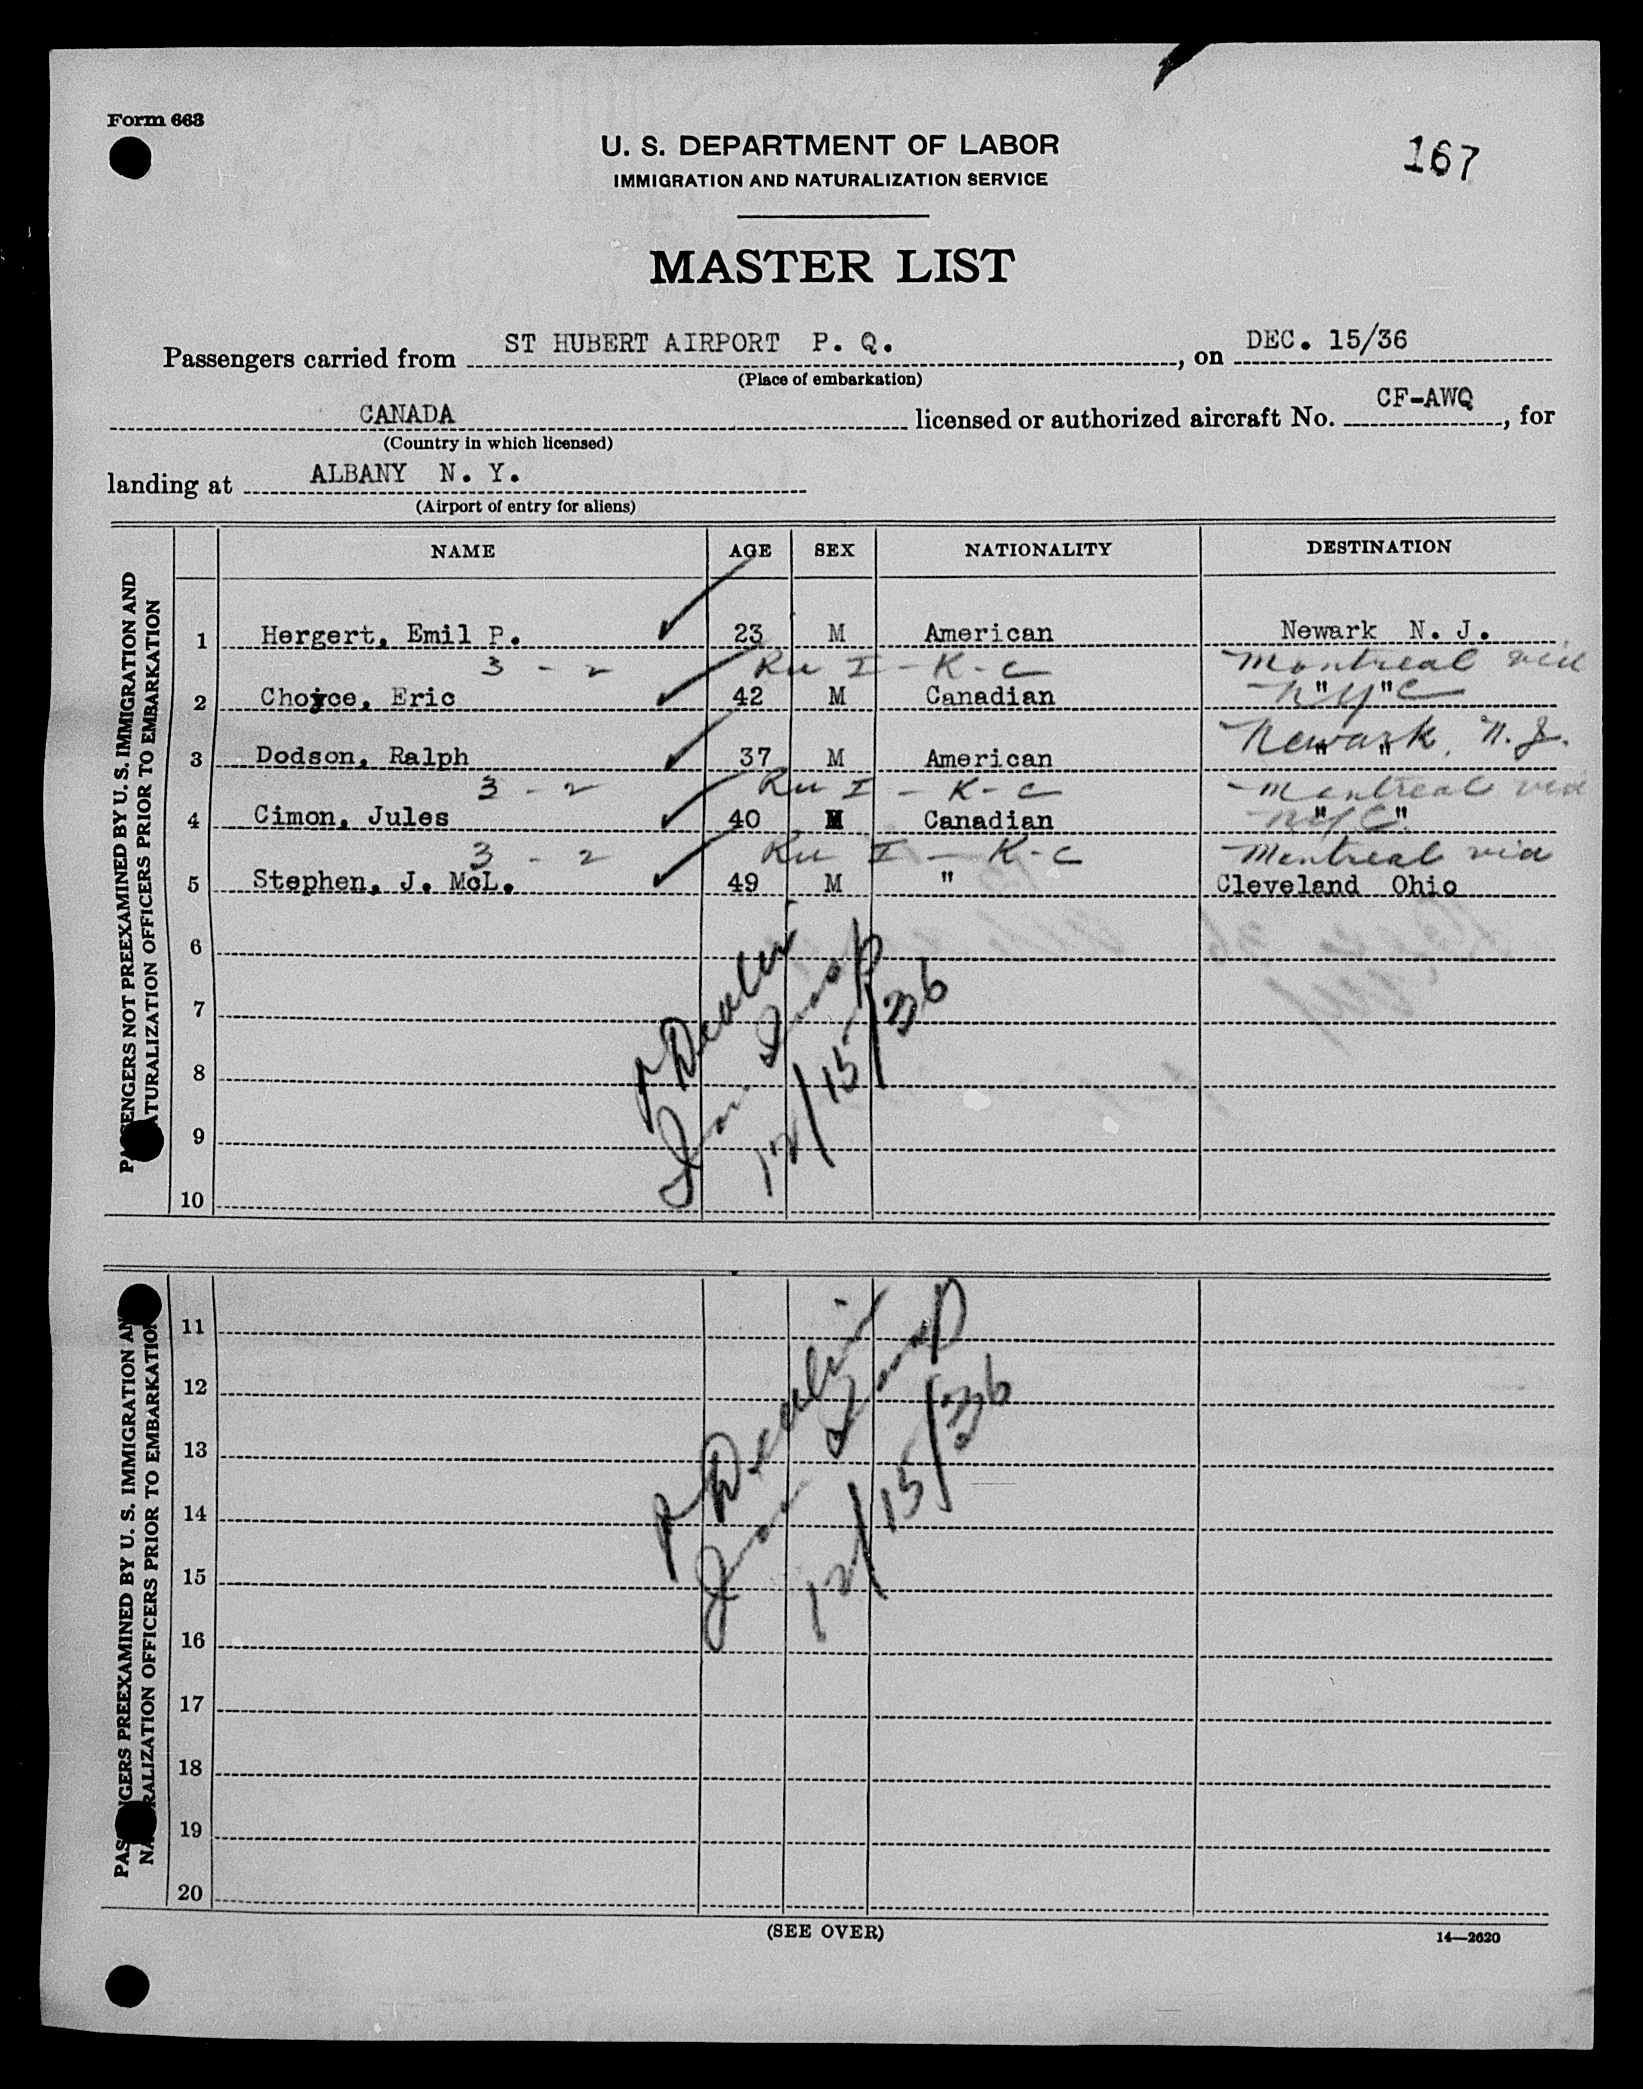 Form 663
U. S. DEPARTMENT OF LABOR
IMMIGRATION AND NATURALIZATION SERVICE
167
MASTER LIST
Passengers carried from ST HUBERT AIRPORT P. Q. , on DEC. 15/36
(Place of embarkation)
CANADA licensed or authorized aircraft No. CF-AWQ , for
(Country in which licensed)
landing at ALBANY N. Y.
(Airport of entry for aliens)
NAME AGE SEX NATIONALITY DESTINATION
PASSENGERS NOT PREEXAMINED BY U. S. IMMIGRATION AND
NATURALIZATION OFFICERS PRIOR TO EMBARKATION
1 Hergert, Emil P. 23 M American Newark N. J.
3 - 2 Ru I - K - C Montreal via
2 Choyce, Eric 42 M Canadian " " NYC
Newark, N. J.
3 Dodson, Ralph 37 M American " "
3 - 2 Ru I - K - C Montreal via
4 Cimon, Jules 40 M Canadian " " NYC
3 - 2 Ru I - K - C Montreal via
5 Stephen, J. McL. 49 M " Cleveland Ohio
6
7
8
9
10
12/15/36
PASSENGERS PREEXAMINED BY U. S. IMMIGRATION AND
NATURALIZATION OFFICERS PRIOR TO EMBARKATION
11
12
13
14
15
16
17
18
19
20
12/15/36
(SEE OVER)
14—2620